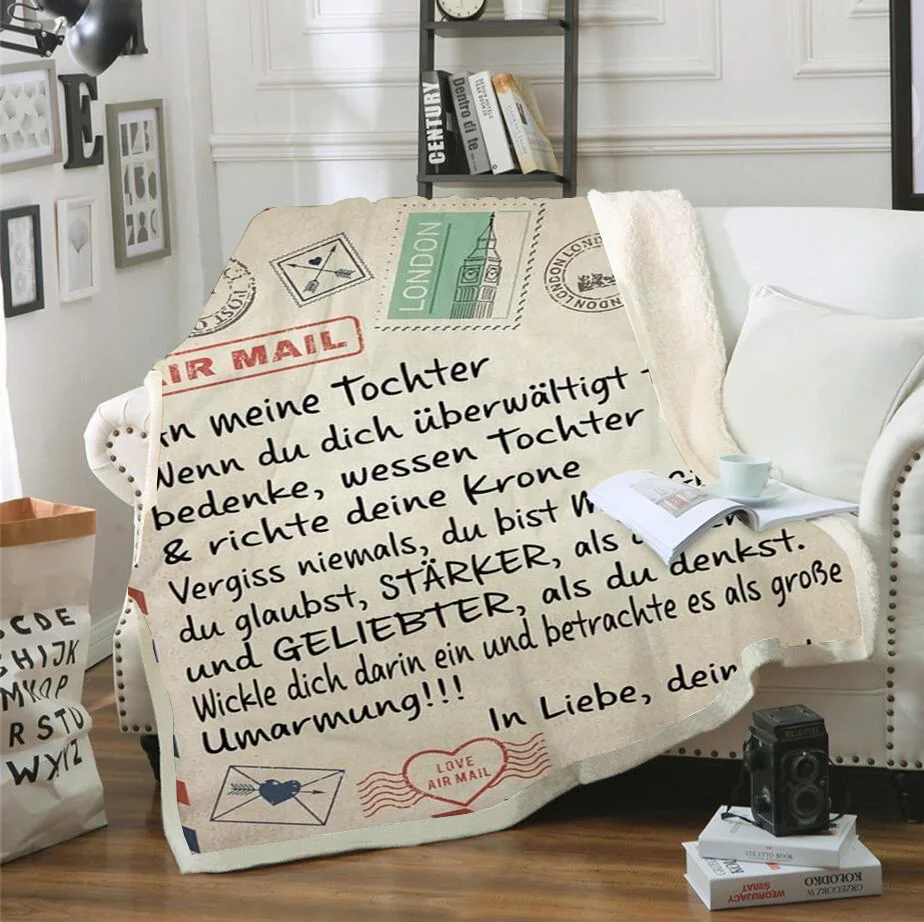 E
CENTURY
Dentro di te
LONDON
POST O
LONDON LOND
LONDON
AIR MAIL
An meine Tochter
Wenn du dich überwältigt
bedenke, wessen Tochter
& richte deine Krone
Vergiss niemals, du bist
du glaubst, STÄRKER, als
und GELIEBTER, als du denkst.
Wickle dich darin ein und betrachte es als große
Umarmung!!!
In Liebe, dein
LOVE
AIR MAIL
CDE
HIJK
MNOP
R STU
WXYZ
STILETTO BOOK
GRZEGORZ W
KOŁODKO
WĘDRUJĄCY
ŚWIAT